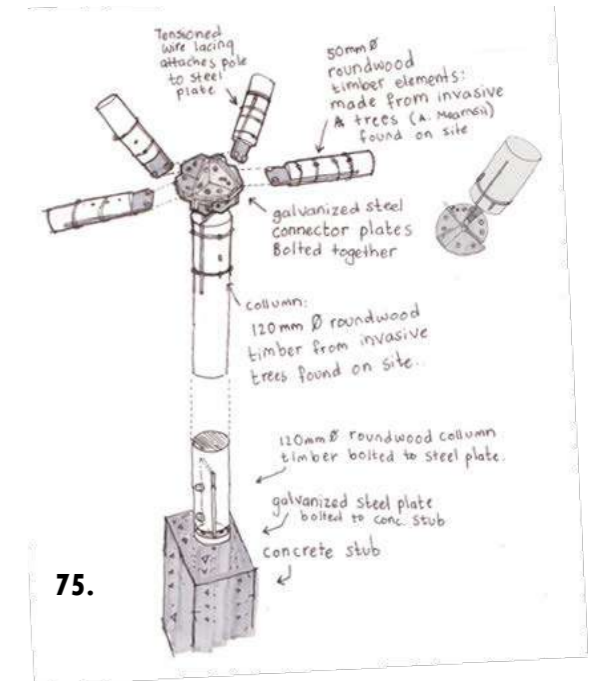 Tensioned
wire lacing
attaches pole
to steel
plate
50mm Ø
roundwood
timber elements:
made from invasive
trees (A. Mearnsii)
found on site
galvanized steel
connector plates
Bolted together
collumn:
120mm Ø roundwood
timber from invasive
trees found on site..
120mm Ø roundwood collumn
timber bolted to steel plate.
galvanized steel plate
bolted to conc. stub
concrete stub
75.